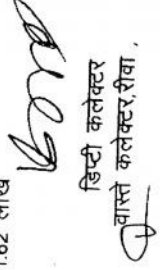 1.62 लाख
डिप्टी कलेक्टर
वास्ते कलेक्टर,रीवा.